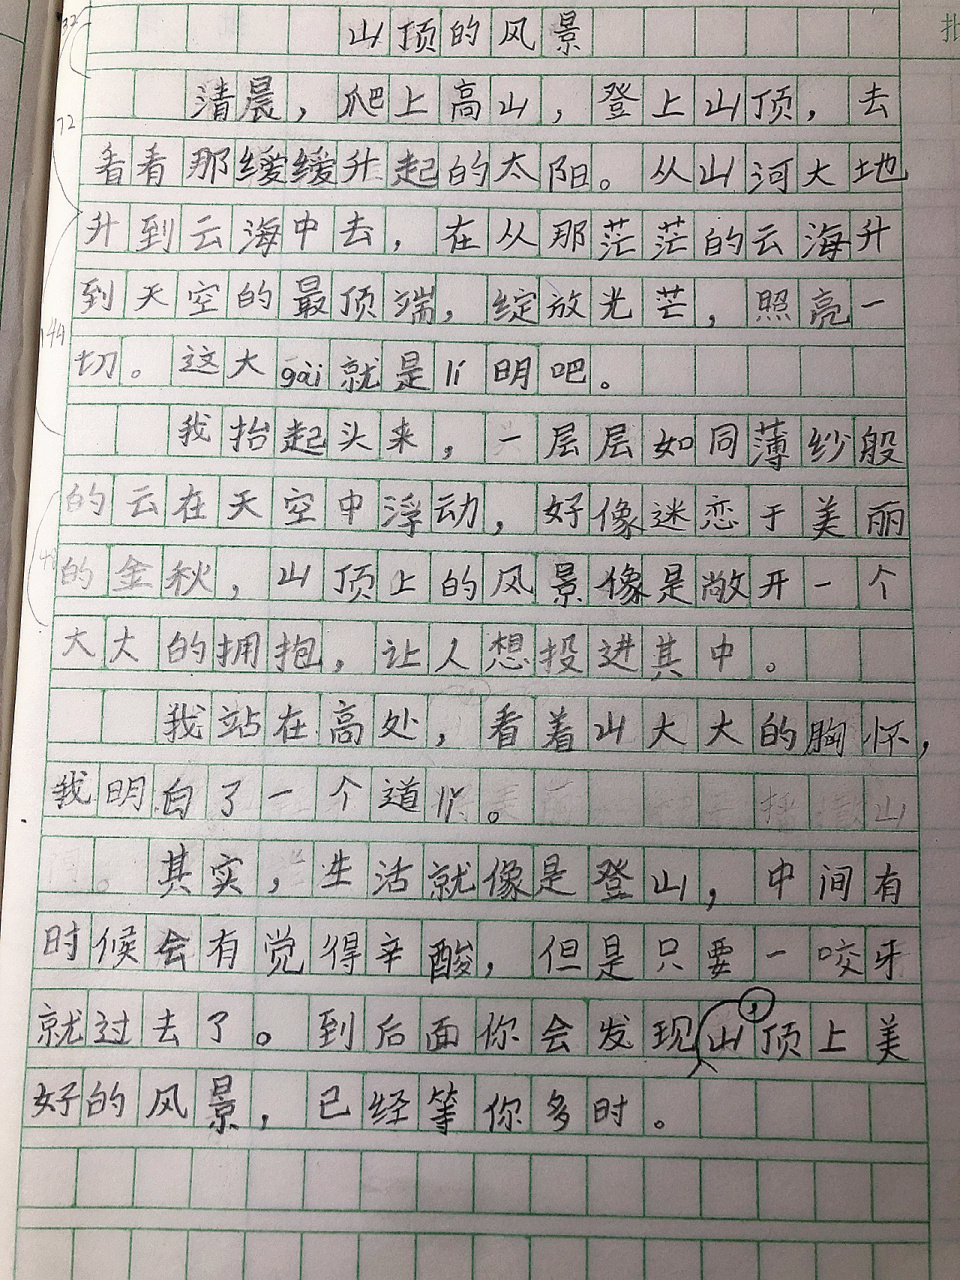 山顶的风景
清晨，爬上高山，登上山顶，去
看看那缓缓升起的太阳。从山河大地
升到云海中去，在从那茫茫的云海升
到天空的最顶端，绽放光芒，照亮一
切。这大gài就是lí明吧。
我抬起头来，一层层如同薄纱般
的云在天空中浮动，好像迷恋于美丽
的金秋，山顶上的风景像是敞开一个
大大的拥抱，让人想投进其中。
我站在高处，看着山大大的胸怀，
我明白了一个道lǐ。
其实，生活就像是登山，中间有
时候会有觉得辛酸，但是只要一咬牙
就过去了。到后面你会发现，山顶上美
好的风景，已经等你多时。
72
144